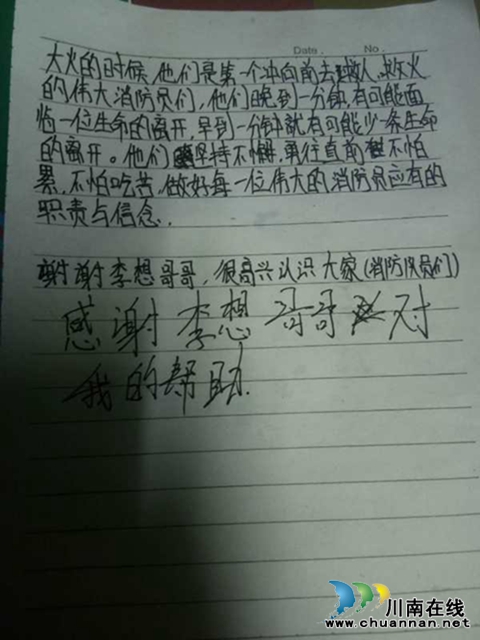 Date. No.
大火的时候,他们是第一个冲向前去救人、救火
的伟大消防员们,他们晚到一分钟,有可能面
临一位生命的离开,早到一分钟就有可能少一条生命
的离开。他们坚持不懈,勇往直前,不怕
累,不怕吃苦,做好每一位伟大的消防员应有的
职责与信念.
谢谢李想哥哥,很高兴认识大家(消防队员们)
感谢李想哥哥对
我的帮助.
川南在线
www.chuannan.net